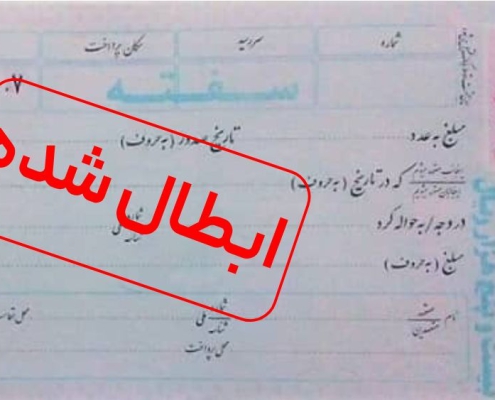 شماره
سررسید
مکان پرداخت
سفته
۰۷
مبلغ به عدد
تاریخ صدور (به حروف)
که در تاریخ (به حروف)
در وجه / به حواله کرد
شماره ملی
شناسه
مبلغ (به حروف)
نام متعهد
متعهدین
شماره ملی
شناسه
محل پرداخت
ابطال شده